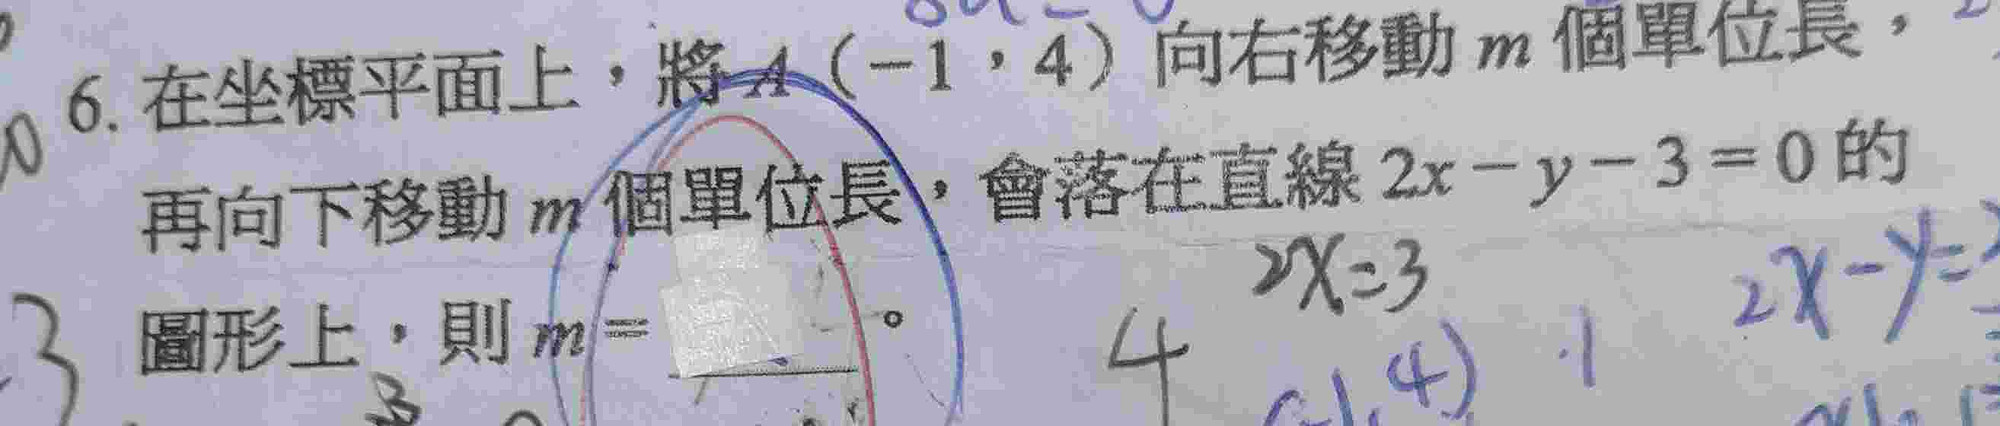 6. 在坐標平面上，將 A（－1，4）向右移動 m 個單位長，
再向下移動 m 個單位長，會落在直線 2x－y－3＝0 的
圖形上，則 m＝ 。
2x=3
2x-y=
4
(-1, 4)
3